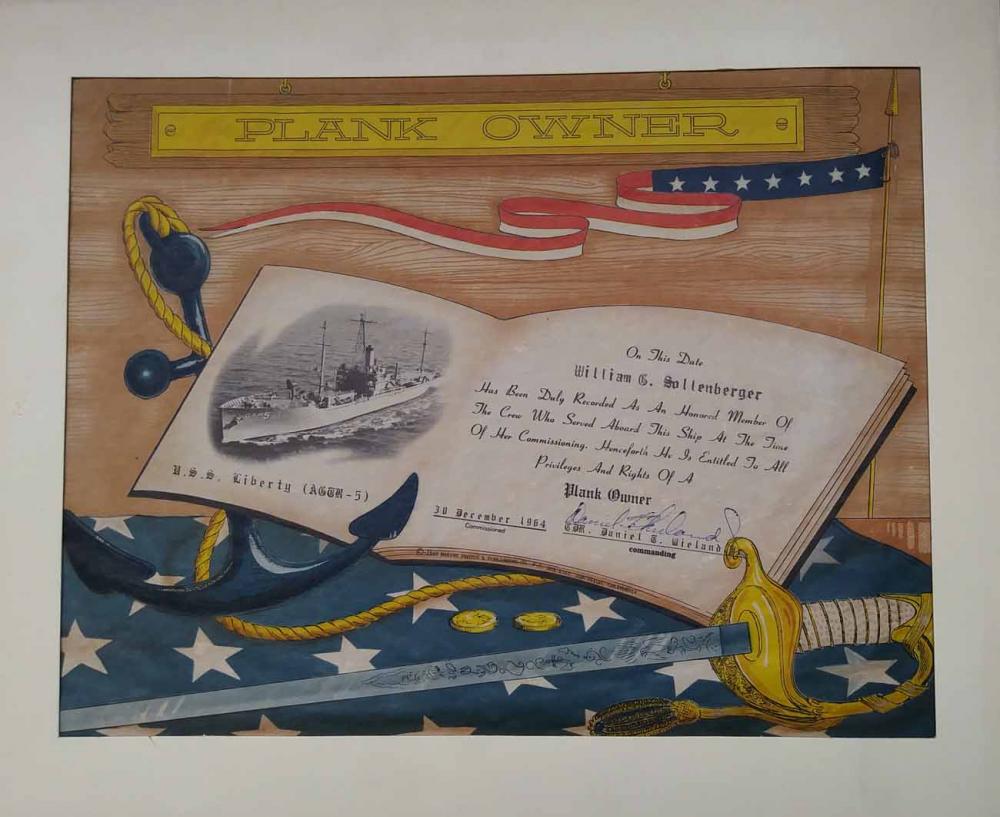 PLANK OWNER
On This Date
William G. Sollenberger
Has Been Duly Recorded As An Honored Member Of
The Crew Who Served Aboard This Ship At The Time
Of Her Commissioning. Henceforth He Is Entitled To All
Privileges And Rights Of A
Plank Owner
U.S.S. Liberty (AGTR-5)
30 December 1964
Commissioned
CDR. Daniel T. Wieland
commanding